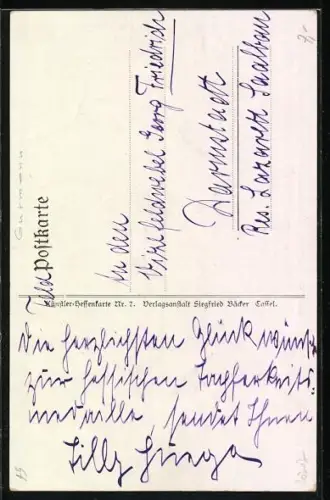 Feldpostkarte
An den
Vizefeldwebel Georg Friedrich
Darmstadt
Res. Lazarett Saalbau
Künstler-Hessenkarte Nr. 7. Verlagsanstalt Siegfried Bäcker Cassel.
Die herzlichsten Glückwünsche
zur hessischen Tapferkeits-
medaille, sendet Ihnen
Tilly